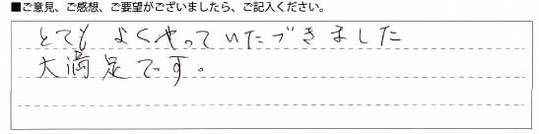 ■ご意見、ご感想、ご要望がございましたら、ご記入ください。
とてもよくやっていただきました
大満足です。